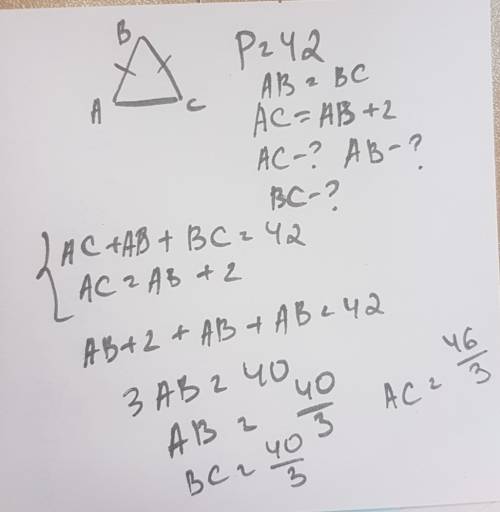 B
A
C
P=42
AB=BC
AC=AB+2
AC-? AB-?
BC-?
{AC+AB+BC=42
AC=AB+2
AB+2+AB+AB=42
3AB=40
AB=40/3
BC=40/3
AC=46/3